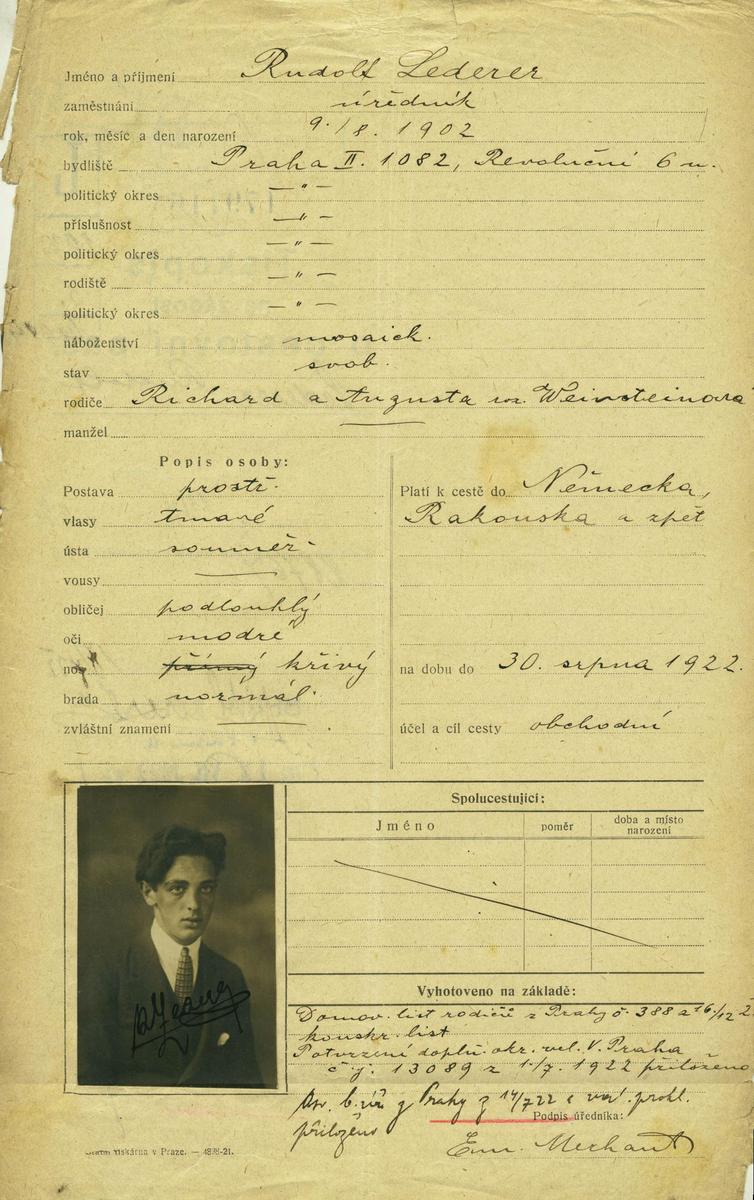 Jméno a příjmení Rudolf Lederer
zaměstnání úředník
rok, měsíc a den narození 9./8. 1902
bydliště Praha II. 1082, Revoluční 6 n.
politický okres — " —
příslušnost — " —
politický okres — " —
rodiště — " —
politický okres — " —
náboženství mosaick.
stav svob.
rodiče Richard a Augusta roz. Weinsteinová
manžel —
Popis osoby:
Postava prostř.
vlasy tmavé
ústa souměr.
vousy —
obličej podlouhlý
oči modré
nos přímý křivý
brada normál.
zvláštní znamení —
Platí k cestě do Německa,
Rakouska a zpět
na dobu do 30. srpna 1922.
účel a cíl cesty obchodní
Spolucestující:
Jméno poměr doba a místo narození
Vyhotoveno na základě:
Domov. list rodičů z Prahy č. 388 z 16./12
konskr. list
Potvrzení doplň. okr. vel. V. Praha
č.j. 13089 z 1./7. 1922 přiloženo
z Prahy z 14/7 22 prohl.
přiloženo
Podpis úředníka:
Em. Merhaut
tiskárna v Praze. — 4838-21.